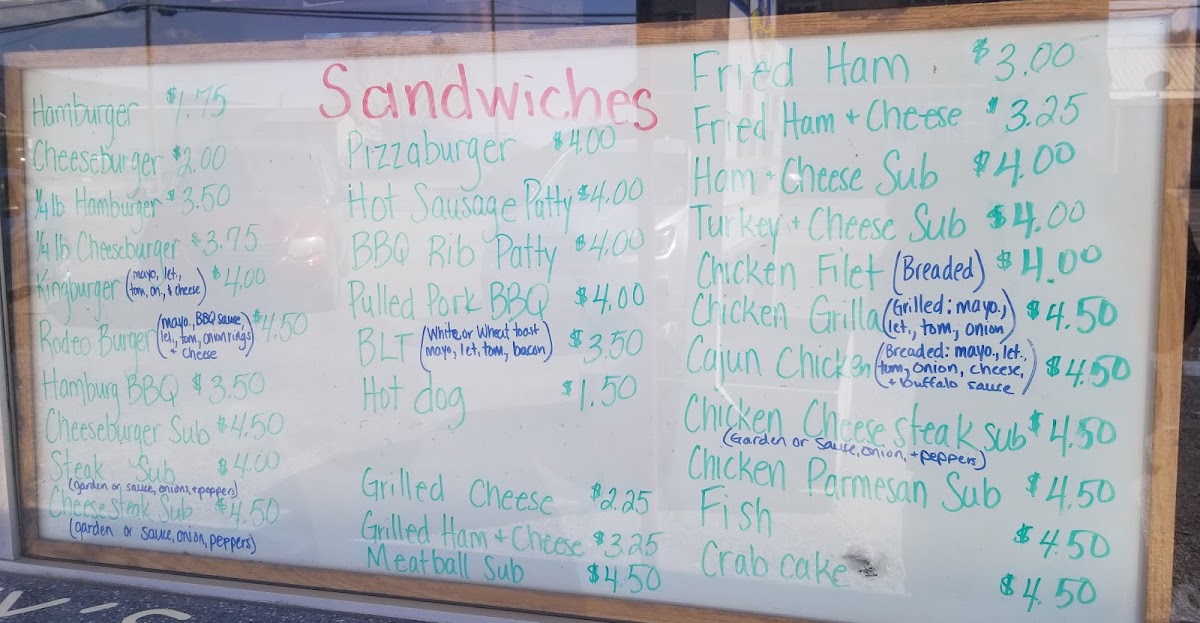 Sandwiches
Hamburger $1.75
Cheeseburger $2.00
1/4 lb Hamburger $3.50
1/4 lb Cheeseburger $3.75
Kingburger (mayo, let., $4.00
tom, on., & cheese)
Rodeo Burger (mayo., BBQ sauce, $4.50
let., tom, onion rings
+ cheese)
Hamburg BBQ $3.50
Cheeseburger Sub $4.50
Steak Sub $4.00
(garden or sauce, onions, + pepper)
Cheese Steak Sub $4.50
(garden or sauce, onion, peppers)
Pizzaburger $4.00
Hot Sausage Patty $4.00
BBQ Rib Patty $4.00
Pulled Pork BBQ $4.00
BLT (White or Wheat toast $3.50
mayo, let, tom, bacon)
Hot dog $1.50
Grilled Cheese $2.25
Grilled Ham + Cheese $3.25
Meatball Sub $4.50
Fried Ham $3.00
Fried Ham + Cheese $3.25
Ham + Cheese Sub $4.00
Turkey + Cheese Sub $4.00
Chicken Filet (Breaded) $4.00
Chicken Grilla (Grilled: mayo., $4.50
let., tom, onion)
Cajun Chicken (Breaded: mayo., let., $4.50
tom, onion, cheese,
+ buffalo sauce)
Chicken Cheese steak sub $4.50
(Garden or sauce, onion, + peppers)
Chicken Parmesan Sub $4.50
Fish $4.50
Crab cake $4.50